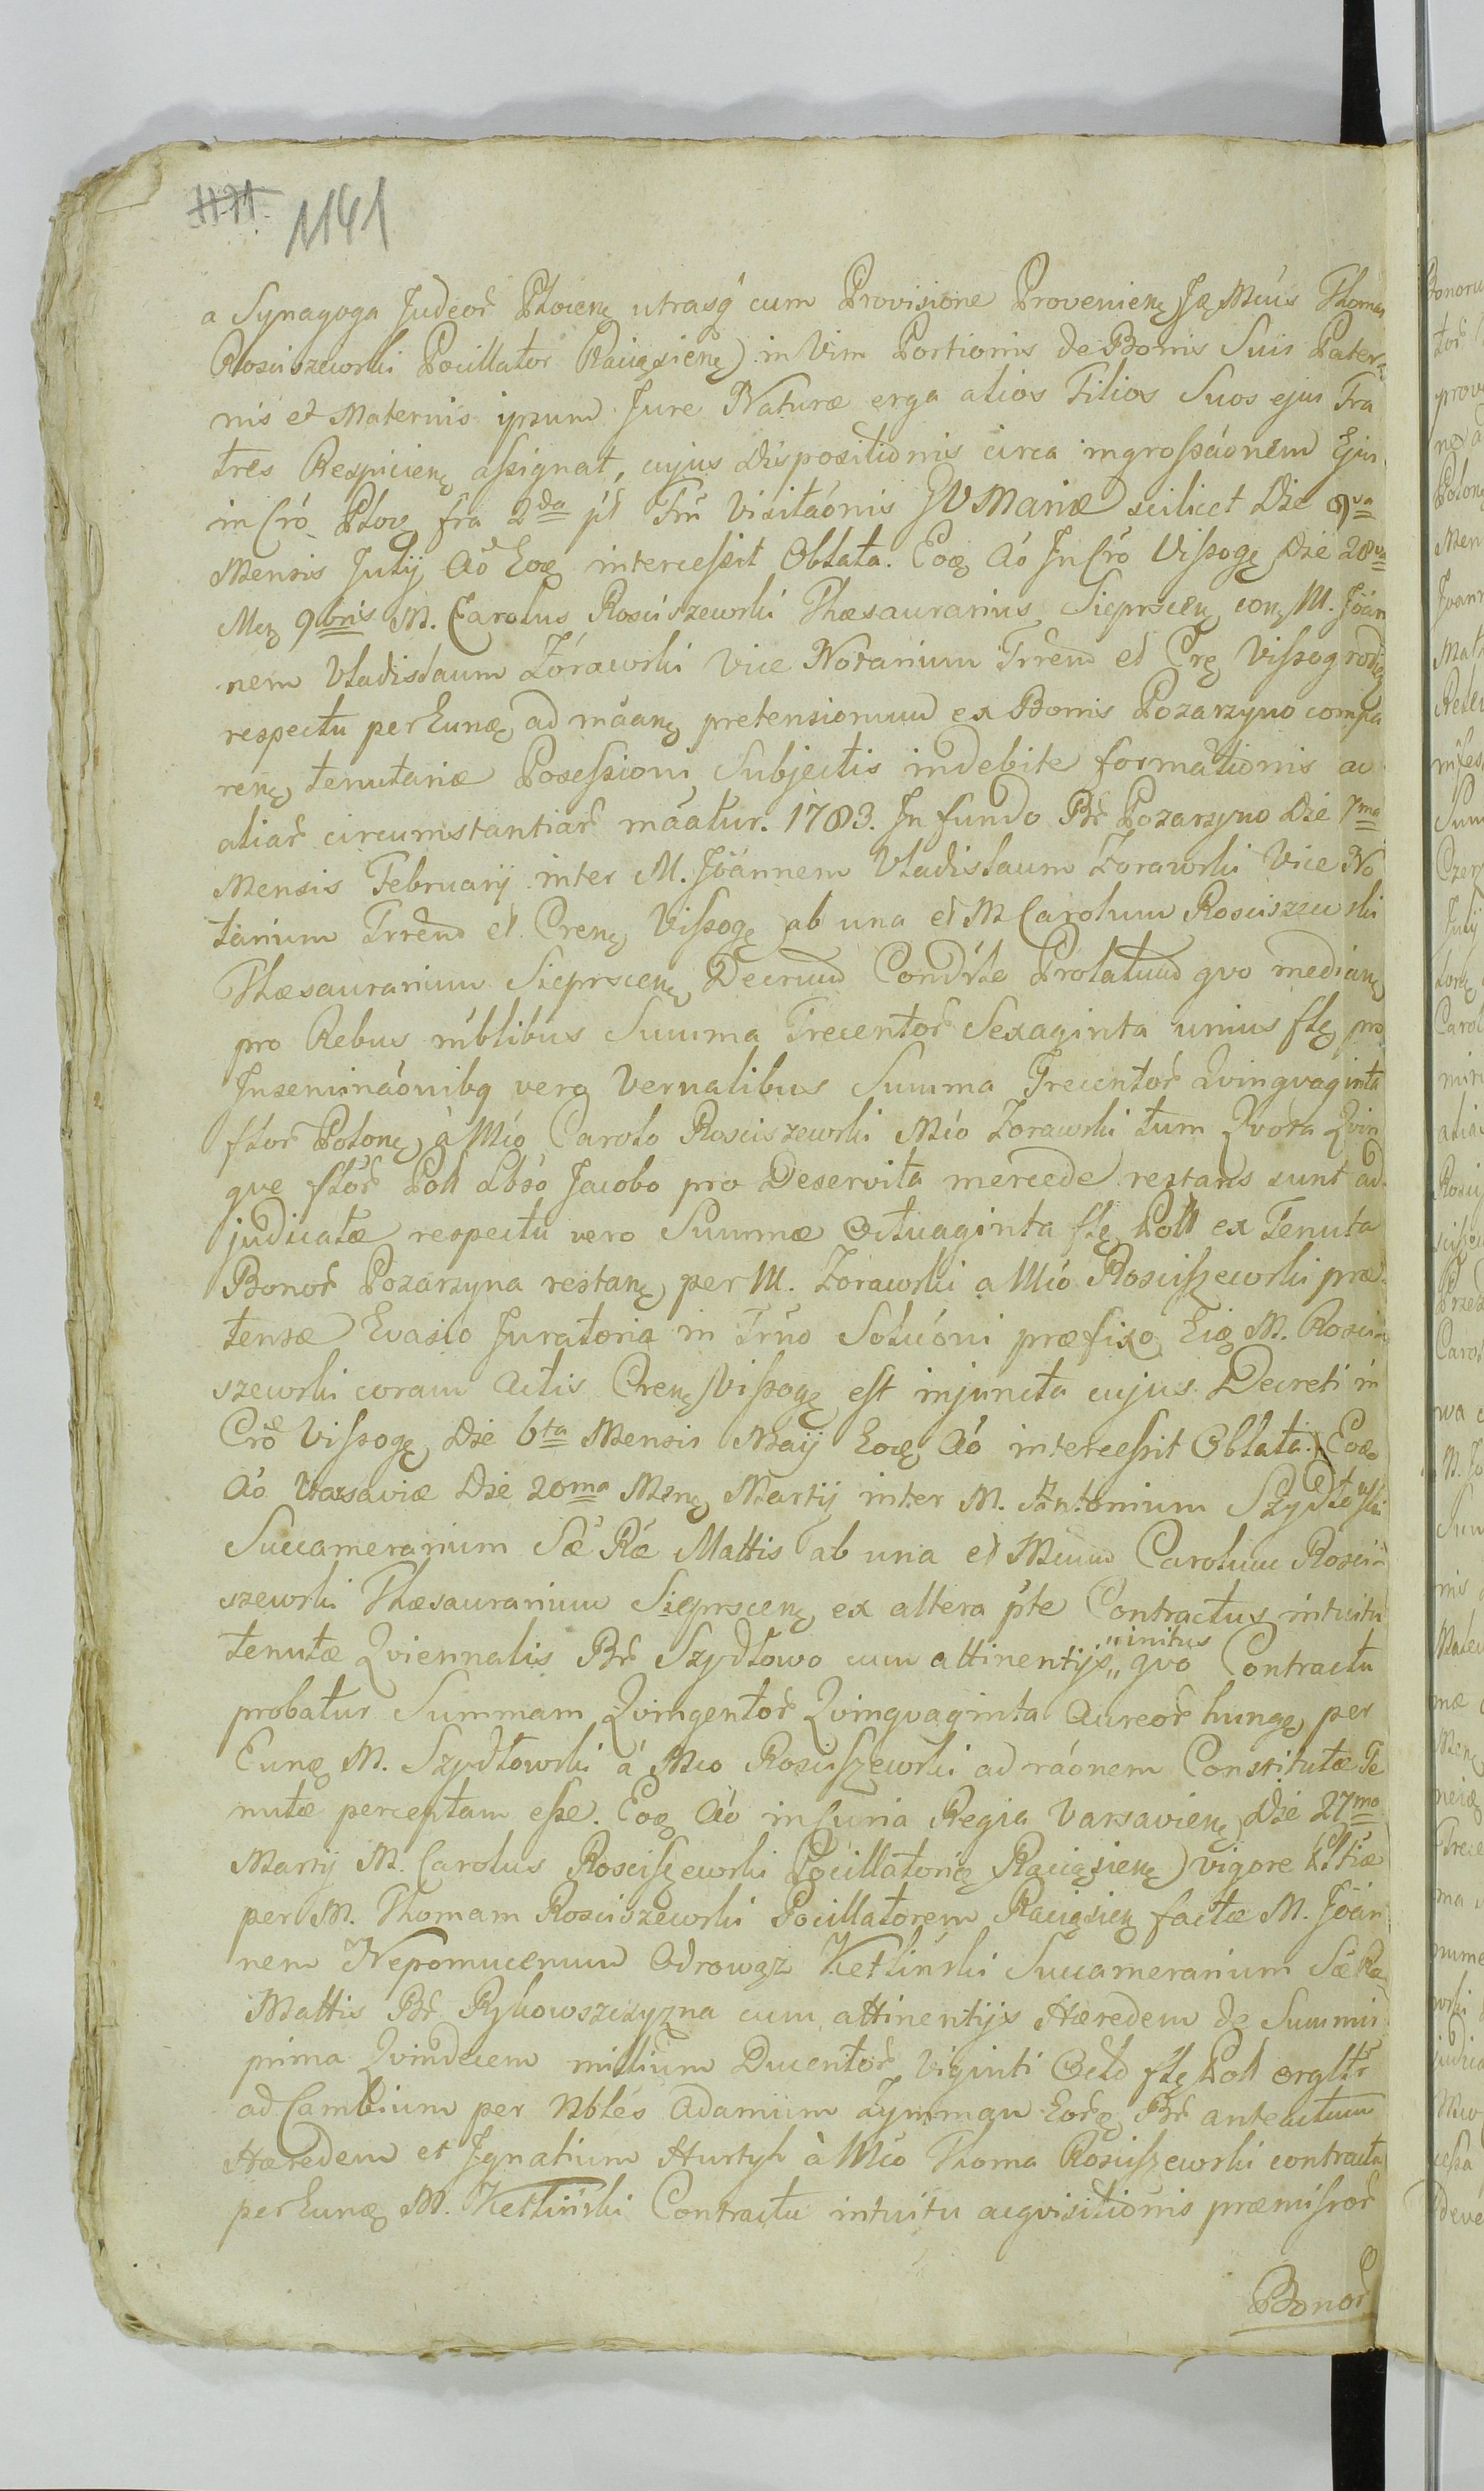 1141
a Synagoga Judeor̃ Płocien̨ utrasq́ cum Provisione Provenien̨ Jg̨ Mcus Thomas
Rosciszewski Pocillator Raciążień) in Vim Portionis de Bonis Suis Pater
nis et Maternis ipsum Jure Naturæ erga alios Filios Suos ejus Fra
tres Respicien̨ assignat, cujus Dispositionis circa ingrossáonem Ejus
in Cró Płoc̨ fra 2da pt̃ Frũ Visitáonis BVMariæ scilicet Die 8va
Mensis Julij Aõ Eoq̨ intercessit Oblata. Eoq̨ Aó In Cró Vissog̨ Die 28va
Mens̨ 9bris M. Carolus Rosciszewski Thæsaurarius Sieprscien̨ con̨ M. Joán
nem Vladislaum Zórawski Vice Notarium Trr̃em et Crę Vissogrod̨
respectu per Eunq̨ ad máan̨ pretensionum ex Bonis Pozarzyno compa
ren̨ tenutariæ Posessioni Subjectis indebite formationis ac
aliar̃ circumstantiar̃ máatur. 1783. In fundo Br̃ Pozarzyno Die 7ma
Mensis Februarij inter M. Joánnem Vladislaum Zorawski Vice No
tarium Trr̃em et Cren̨ Vissog̨ ab una et M Carolum Rosciszewski
Thæsaurarium Sieprscien̨ Decrum Condĩle Prolatum qvo median̨
pro Rebus mb́libus Summa Trecentor̃ Sexaginta unius fl̨ pro
Inseminaónibq vero Vernalibus Summa Trecentor̃ Qvinqvaginta
flor̃ Polon̨ à Mĩo Carolo Rosciszewski Mĩo Zorawski tum Qvota Qvin
qve flór̃ Poll Lb́so Jacobo pro Deservita mercede restans sunt ad
judicatæ respectu vero Summæ Octuaginta fl̨ Poll ex Tenuta
Bonor̃ Pozarzyna restan̨ per M. Zorawski a Mĩo Rosciszewski præ
tensæ Evasio Juratoria in Tr̃no Solucóni præfixo Eiq̨ M. Rosci
szewski coram Actis Cren̨ Vissog̨ est injuncta cujus Decreti in
Crõ Vissog̨ Die 6ta Mensis Maij Eoq̨ Aó intercessit Oblata. Eoq̨
Aó Varsaviæ Die 20ma Men̨ Martij inter M. Antonium Szydłowski
Succamerarium Sæ Ræ Mattis ab una et Mcum Carolum Rosci
szewski Thæsaurarium Sieprscien̨ ex altera pt́e Contractus intuitu
tenutæ Qviennalis Br̃ Szydłowo cum attinentijs „initus„ qvo Contractu
probatur Summam Qvingentor̃ Qvinqvaginta Aureor̃ hung̨ per
Eunq̨ M. Szydłowski á Mĩo Rosciszewski ad ráonem Constitutæ Te
nutæ perceptam esse. Eoq̨ Aó in Curia Regia Varsavien̨ Die 27ma
Martij M. Carolus Rosciszewski Pocillatoriq̨ Raciążien̨) vigore
per M. Thomam Rosciszewski Pocillatorem Raciążien̨ factæ M. Joán
nem Nepomucenum Odrowąz Ketliński Succamerarium Sæ Ræ
Mattis Br̃ Rykowszczyzna cum attinentijs Hæredem de Summis
prima Qvindecem millium Ducentor̃ Viginti Octo fl̨ Poll orgltr̃
ad Cambium per Nb́les Adamum Zymman Eorq̨ Br̃ anteactum
Hæredem et Ignatium Hurtyk à Mĩo Thoma Rosciszewski contracta
per Eunq̨ M. Ketliński Contractu intuitu acqvisitionis præmissor̃
Bonor̃